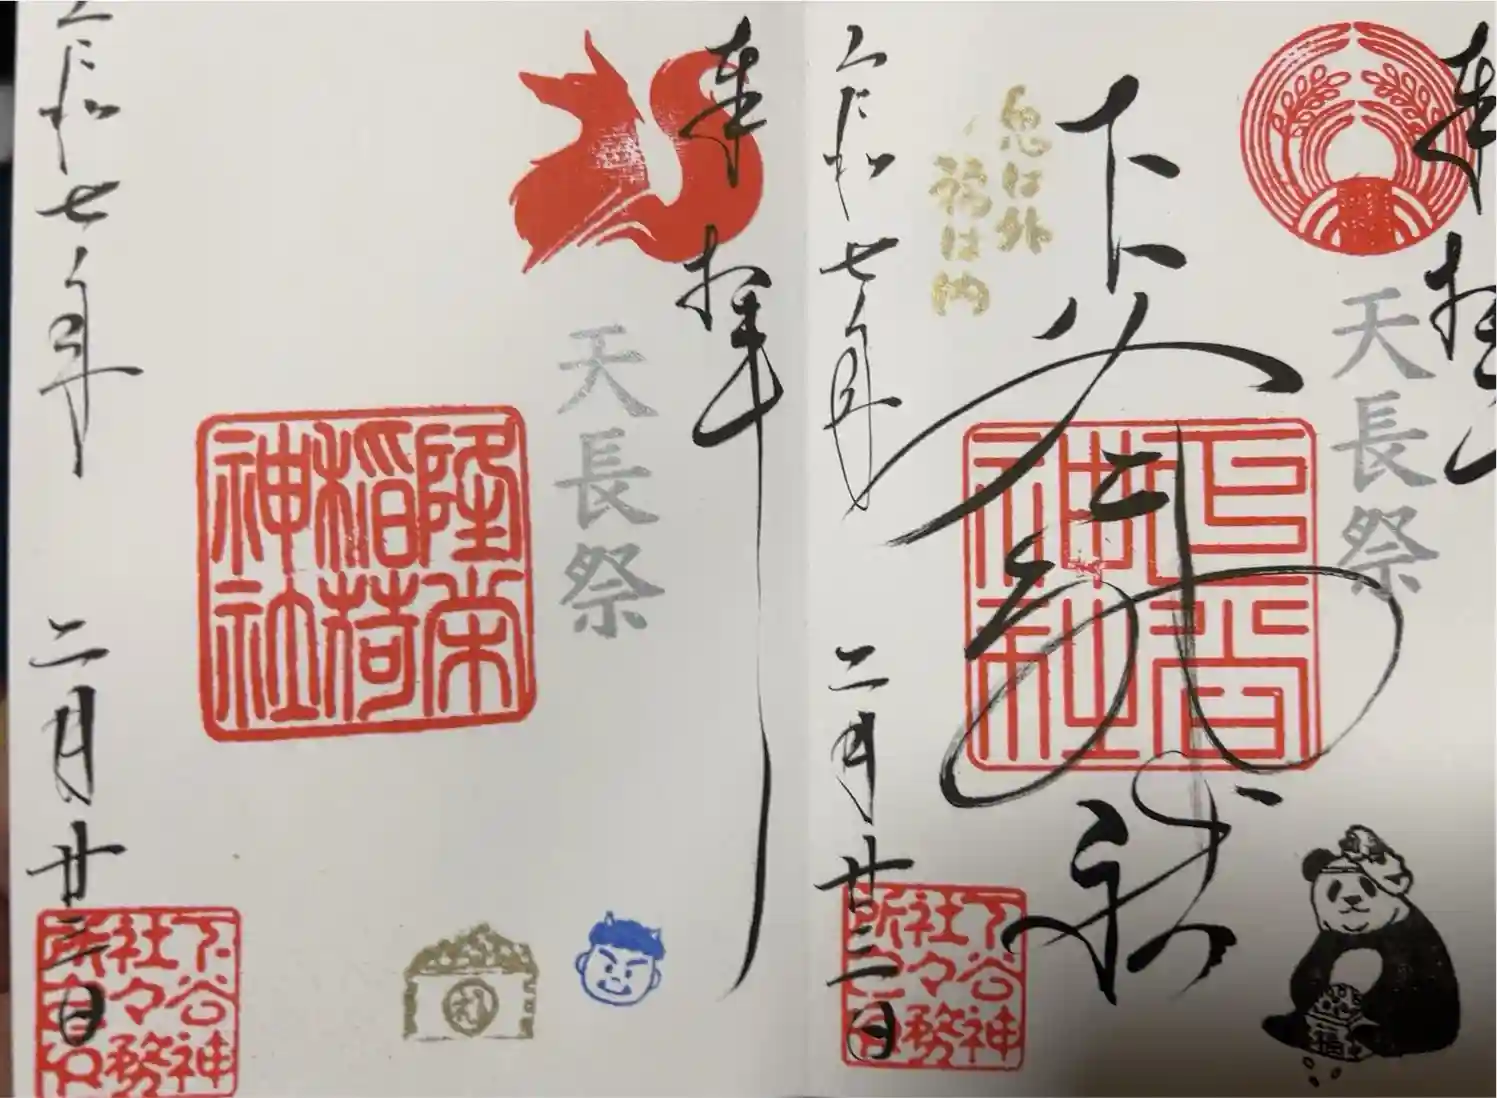 奉拝
下谷神社
下谷神社
天長祭
鬼は外
福は内
令和七年二月廿三日
下谷神
社々務
所之印
福
奉拝
天長祭
隆栄
稲荷
神社
令和七年二月廿三日
下谷神
社々務
所之印